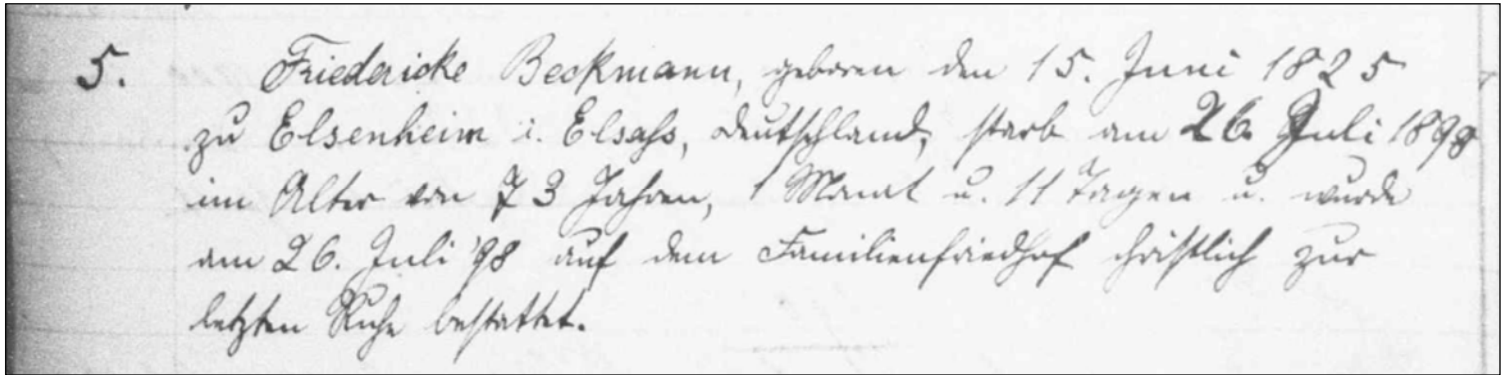 5. Friedericke Beckmann, geboren den 15. Juni 1825
zu Elsenheim i. Elsaß, Deutschland, starb am 26. Juli 1898
im Alter von 73 Jahren, 1 Monat u. 11 Tagen u. wurde
am 26. Juli '98 auf dem Familienfriedhof christlich zur
letzten Ruhe bestattet.